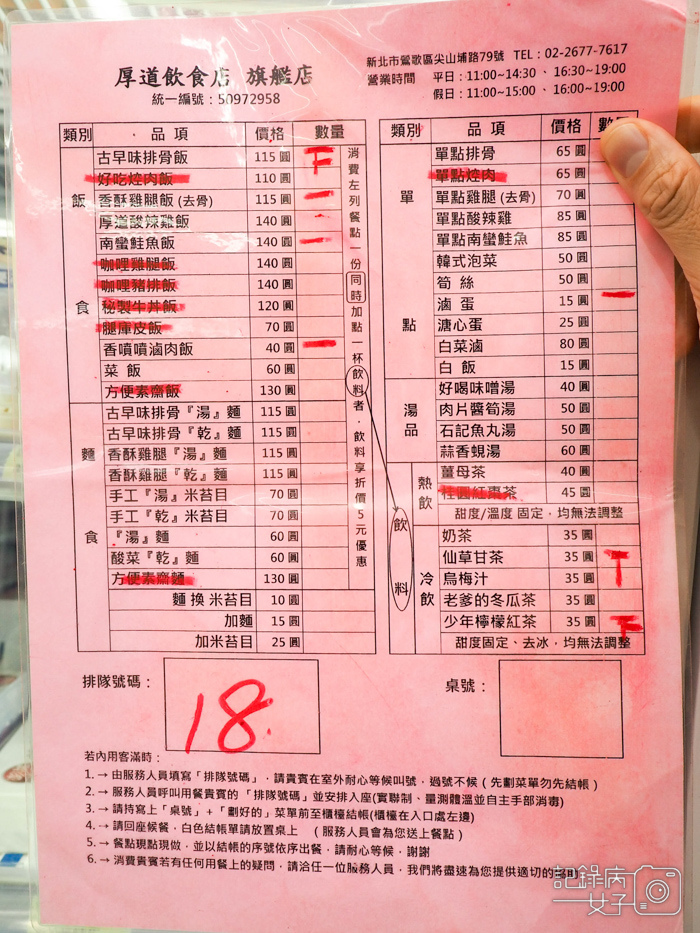 厚道飲食店 旗艦店
統一編號：50972958
新北市鶯歌區尖山埔路79號 TEL：02-2677-7617
營業時間 平日：11:00~14:30 、 16:30~19:00
假日：11:00~15:00 、 16:00~19:00
類別 品項 價格 數量
飯食
古早味排骨飯 115圓
好吃焢肉飯 110圓
香酥雞腿飯(去骨) 115圓
厚道酸辣雞飯 140圓
南蠻鮭魚飯 140圓
咖哩雞腿飯 140圓
咖哩豬排飯 140圓
秘製牛丼飯 120圓
腿庫皮飯 70圓
香噴噴滷肉飯 40圓
菜飯 60圓
方便素齋飯 130圓
麵食
古早味排骨『湯』麵 115圓
古早味排骨『乾』麵 115圓
香酥雞腿『湯』麵 115圓
香酥雞腿『乾』麵 115圓
手工『湯』米苔目 70圓
手工『乾』米苔目 70圓
『湯』麵 60圓
酸菜『乾』麵 60圓
方便素齋麵 130圓
麵換米苔目 10圓
加麵 15圓
加米苔目 25圓
消費左列餐點一份同時加點一杯飲料者．飲料享折價5元優惠
類別 品項 價格 數
單點
單點排骨 65圓
單點焢肉 65圓
單點雞腿(去骨) 70圓
單點酸辣雞 85圓
單點南蠻鮭魚 85圓
韓式泡菜 50圓
筍絲 50圓
滷蛋 15圓
溏心蛋 25圓
白菜滷 80圓
白飯 15圓
湯品
好喝味噌湯 40圓
肉片醬筍湯 50圓
石記魚丸湯 50圓
蒜香蜆湯 60圓
飲料
熱飲
薑母茶 40圓
桂圓紅棗茶 45圓
甜度/溫度 固定，均無法調整
冷飲
奶茶 35圓
仙草甘茶 35圓
烏梅汁 35圓
老爹的冬瓜茶 35圓
少年檸檬紅茶 35圓
甜度固定、去冰，均無法調整
排隊號碼： 18
桌號：
若內用客滿時：
1.→由服務人員填寫「排隊號碼」，請貴賓在室外耐心等候叫號，過號不候（先劃菜單勿先結帳）
2.→服務人員呼叫用餐貴賓的「排隊號碼」並安排入座(實聯制、量測體溫並自主手部消毒)
3.→請持寫上「桌號」+「劃好的」菜單前至櫃檯結帳(櫃檯在入口處左邊)
4.→請回座候餐，白色結帳單請放置桌上 （服務人員會為您送上餐點）
5.→餐點現點現做，並以結帳的序號依序出餐，請耐心等候，謝謝
6.→消費貴賓若有任何用餐上的疑問，請洽任一位服務人員，我們將盡速為您提供適切的協助
記錄病女子